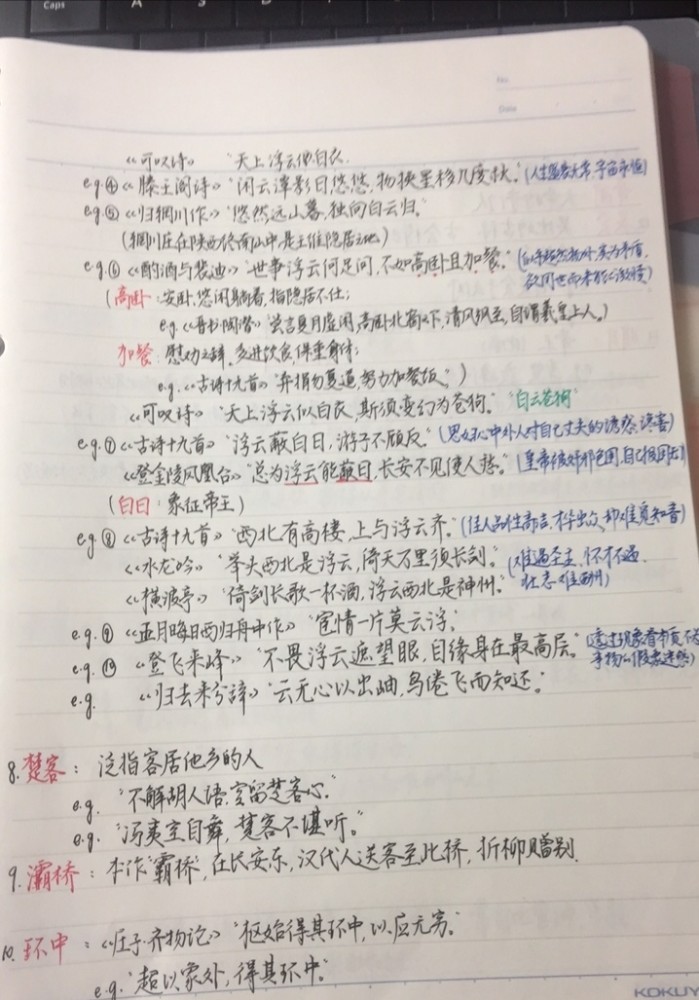 Caps
A
S
D
No.
Date
《可叹诗》 "天上浮云似白衣.
e.g.④《滕王阁诗》"闲云潭影日悠悠,物换星移几度秋。"(人生盛衰无常,宇宙永恒)
e.g.⑤《归辋川作》"悠然远山暮,独向白云归。"
(辋川庄在陕西终南山中,是王维隐居之地)
e.g.⑥《酌酒与裴迪》"世事浮云何足问,不如高卧且加餐。"(超然物外,实为矛盾,
(高卧:安卧、悠闲躺着,指隐居不仕;
e.g.《晋书·陶潜》"尝言夏月虚闲,高卧北窗之下,清风飒至,自谓羲皇上人。)
加餐:慰劝之辞,多进饮食,保重身体;
e.g.《古诗十九首》"弃捐勿复道,努力加餐饭。")
《可叹诗》"天上浮云似白衣,斯须变幻为苍狗。" "白云苍狗"
e.g.⑦《古诗十九首》"浮云蔽白日,游子不顾反。"(思女心中外人对自己丈夫的诱惑、)
《登金陵凤凰台》"总为浮云能蔽日,长安不见使人愁。"(皇帝被奸邪包围,自己)
(白日:象征帝王)
e.g.⑧《古诗十九首》"西北有高楼,上与浮云齐。"(佳人品性高洁,才华出众,却难觅知音)
《水龙吟》"举头西北是浮云,倚天万里须长剑。"(难遇圣主、怀才不遇、
《横波亭》"倚剑长歌一杯酒,浮云西北是神州。" 壮志难酬)
e.g.⑨《正月晦日西归舟中作》"宦情一片莫云浮。"
e.g.⑩《登飞来峰》"不畏浮云遮望眼,自缘身在最高层。"(透过现象看本质,不
e.g. 《归去来兮辞》"云无心以出岫,鸟倦飞而知还。"
8.楚客:泛指客居他乡的人
e.g. "不解胡人语,空留楚客心。"
e.g. "冯夷空自舞,楚客不堪听。"
9.灞桥:本作"霸桥",在长安东,汉代人送客至此桥,折柳赠别.
10.环中:《庄子·齐物论》"枢始得其环中,以应无穷。"
e.g. "超以象外,得其环中。"
KOKUY